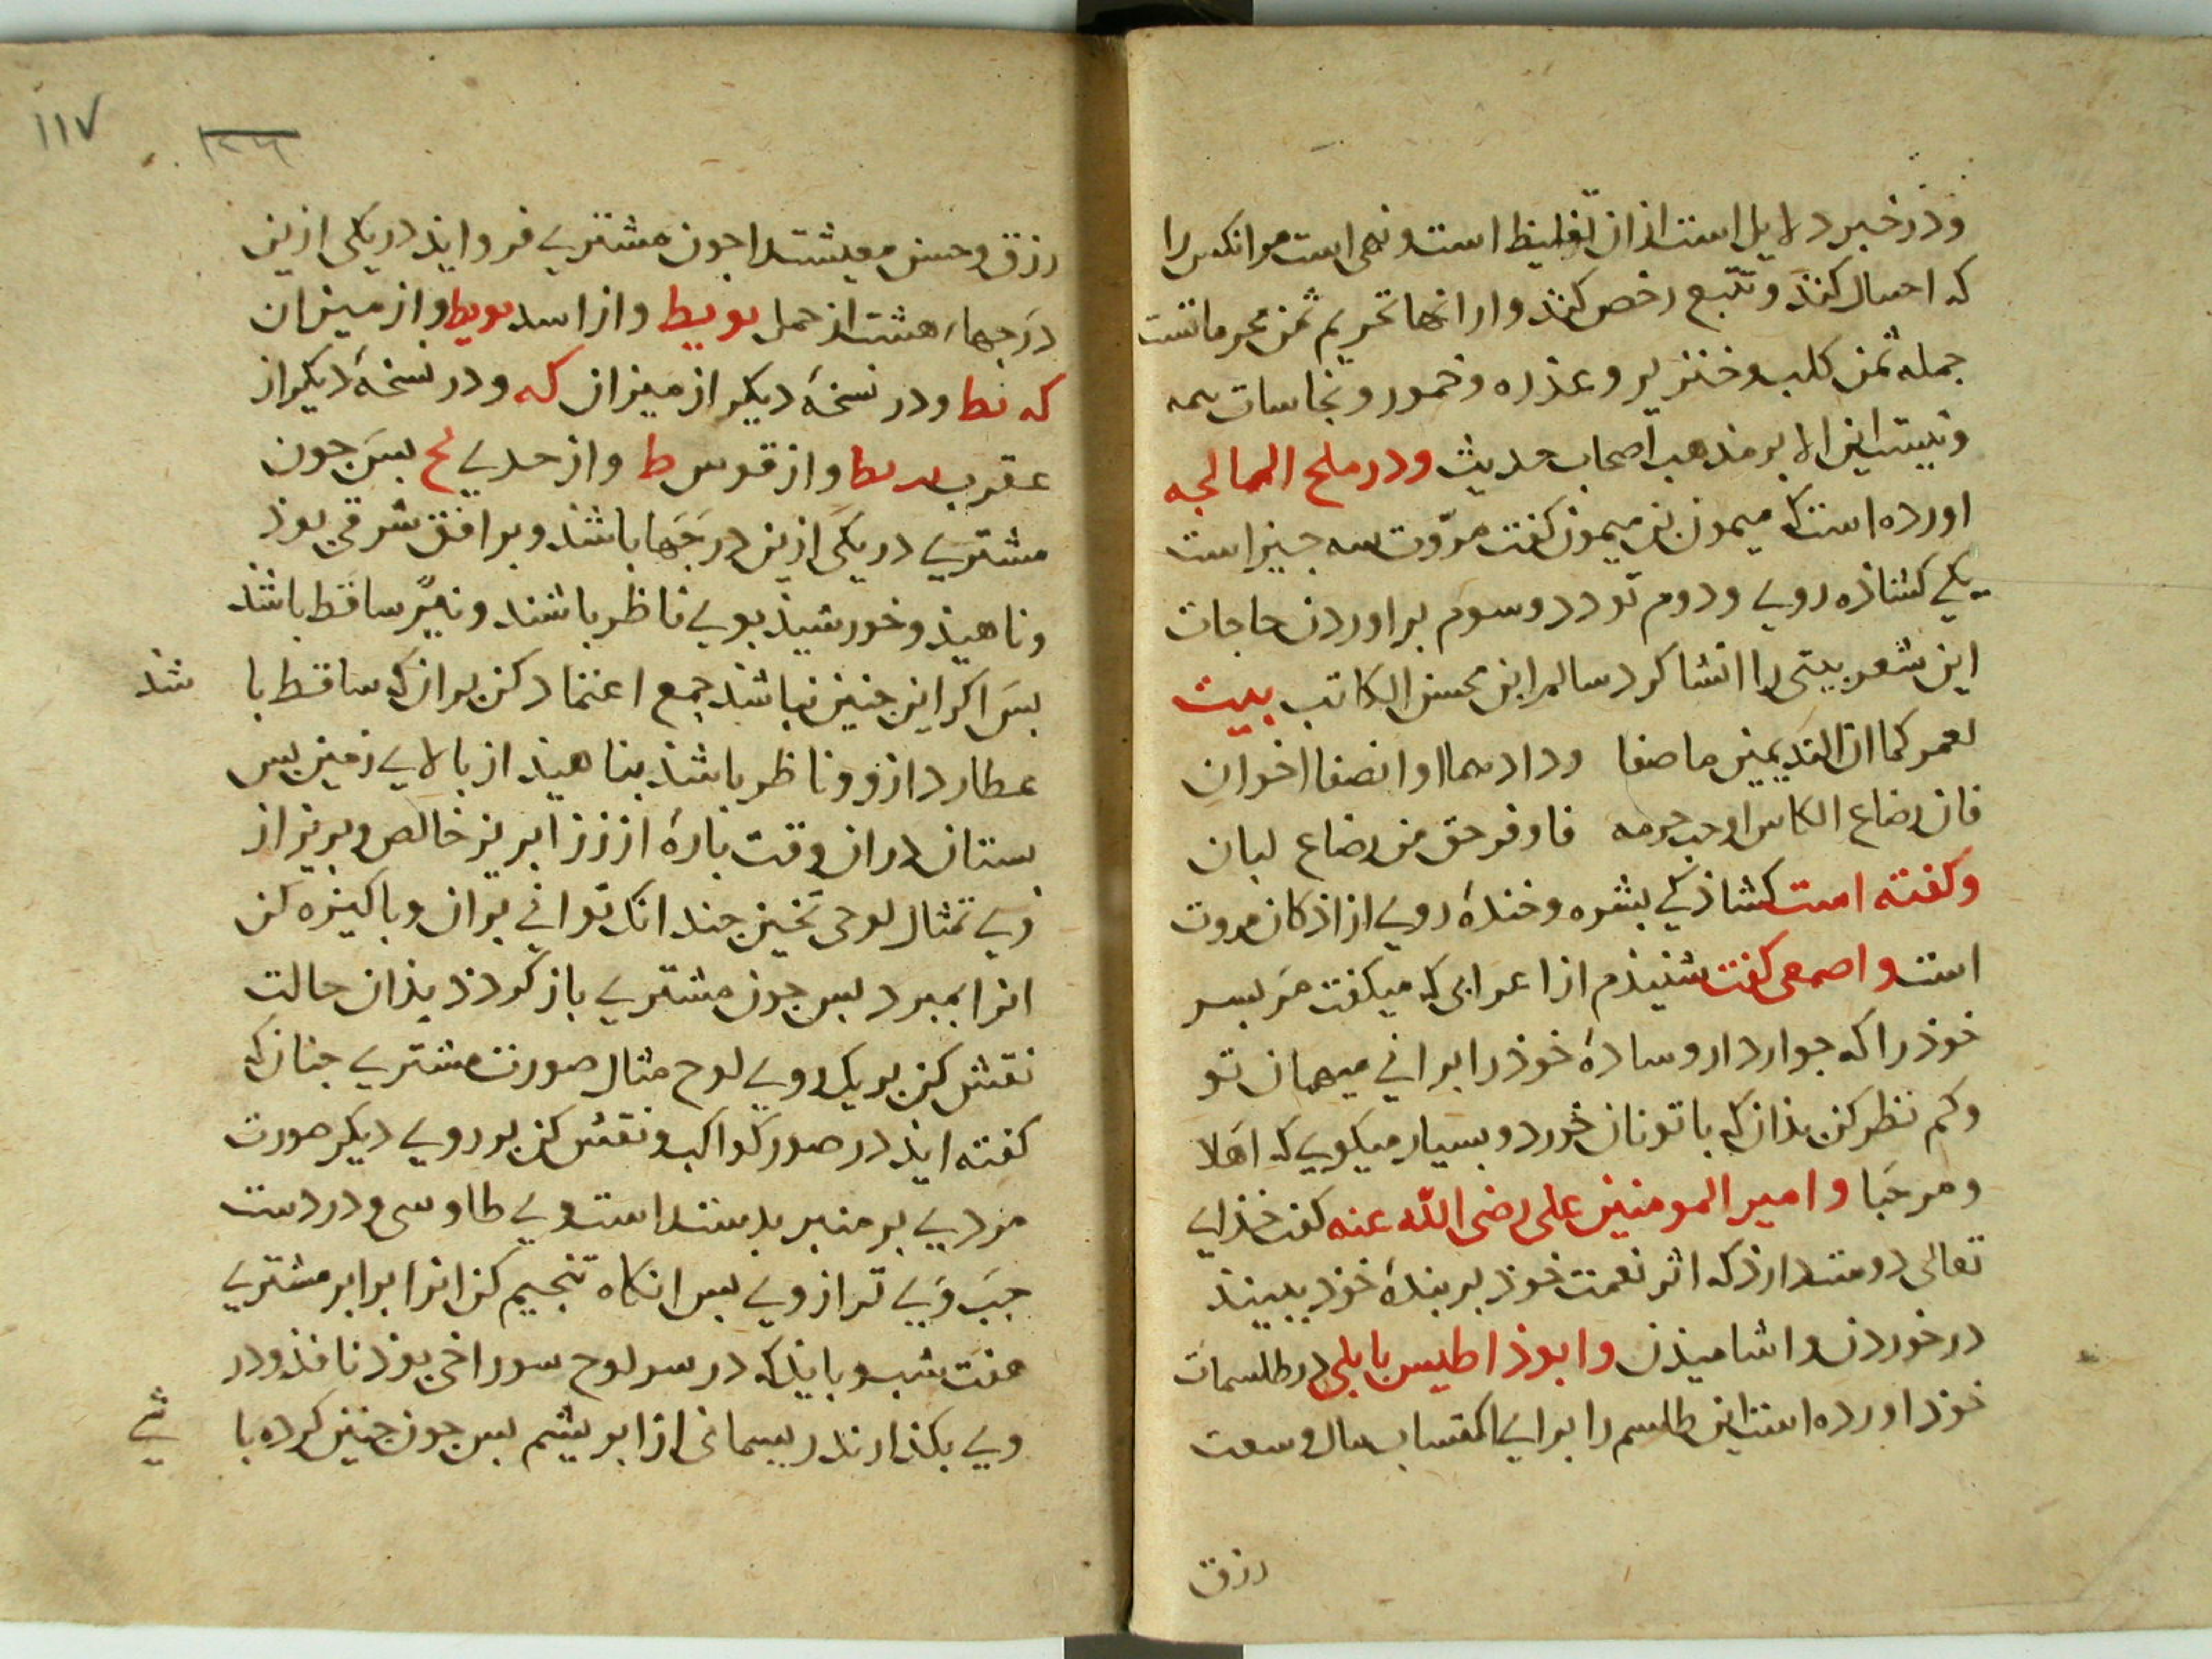 وذر خبر دلایل است از ان تغلیظ است و نهی است مر انکس را
که احسال کند و تتبع رخص کند و از انها تحریم ثمن محرماتست
جمله ثمن کلب و خنزیر و عذره و خمور و نجاسات همه
و نیست این الا بر مذهب اصحاب حدیث و در ملح الممالحه
اورده است که میمون بن میمون کفت مروّت سه جیز است
یکی کشاذه رویی و دوم تودد و سوم براوردن حاجات
این شعر بیتی را انشا کرد سالم ابن محسن الکاتب بیت
لعمرکما ان الندیمین ما صفا ودادهما او انصفا اخوان
فان رضاع الکاس اوجب حرمه فاوفر حق من رضاع لبان
و کفته است کشاذکی بشره و خندهٔ رویی از ارکان مروت
است و اصمعی کفت شنیذم از اعرابی که میکفت مر بسر
خوذ را که جوار دار و سادهٔ خوذ را برانی میهمان تو
و کم نظر کن بذانکه با تو نان خورد و بسیار میکویی که اهلا
و مرحبا و امیر المومنین علی رضی الله عنه کفت خذای
تعالی دوست دارذ که اثر نعمت خوذ بر بندهٔ خوذ ببیند
در خوردن و اشامیذن و ابوذاطیس بابلی در طلسمات
خوذ اورده است این طلسم را برای اکتساب مال و سعت
رزق
١١٧
رزق و حسن معیشت را جون مشتری فرو ایذ در یکی ازین
درجهاء هشت از حمل یو یط و از اسد یو یط و از میزان
که نط و در نسخهٔ دیکر از میزان که و در نسخهٔ دیکر از
عقرب و از قوس ط و از جدی لح بس جون
مشتری در یکی ازین درجها باشذ و بر افق شرقی بوذ
و ناهیذ و خورشیذ بوی ناظر باشند و نیّر ساقط باشذ
بس اکر این جنین نباشذ جمع اعتماد کن برانکه ساقط با شذ
عطارد ازو و ناظر باشذ بناهیذ از بالای زمین بس
بستان دران وقت بارهٔ از زر ابریز خالص و بریز از
وی تمثال لوحی ثخین جندانک توانی بران و باکیزه کن
انرا بمبرد بس جون مشتری باز کردذ بذان حالت
نقش کن بر یک روی لوح مثال صورت مشتری جنانکه
کفته ایذ در صور کواکب و نقش کن بر روی دیکر صورت
مردی بر منبر بدست راست وی طاوسی و در دست
جب وی ترازوی بس انکاه تنجیم کن انرا برابر مشتری
هفت شب و بایذ که در سر لوح سوراخی بوذ نافذ و در
وی بکذارند ریسمانی از ابریشم بس جون جنین کرده با شی